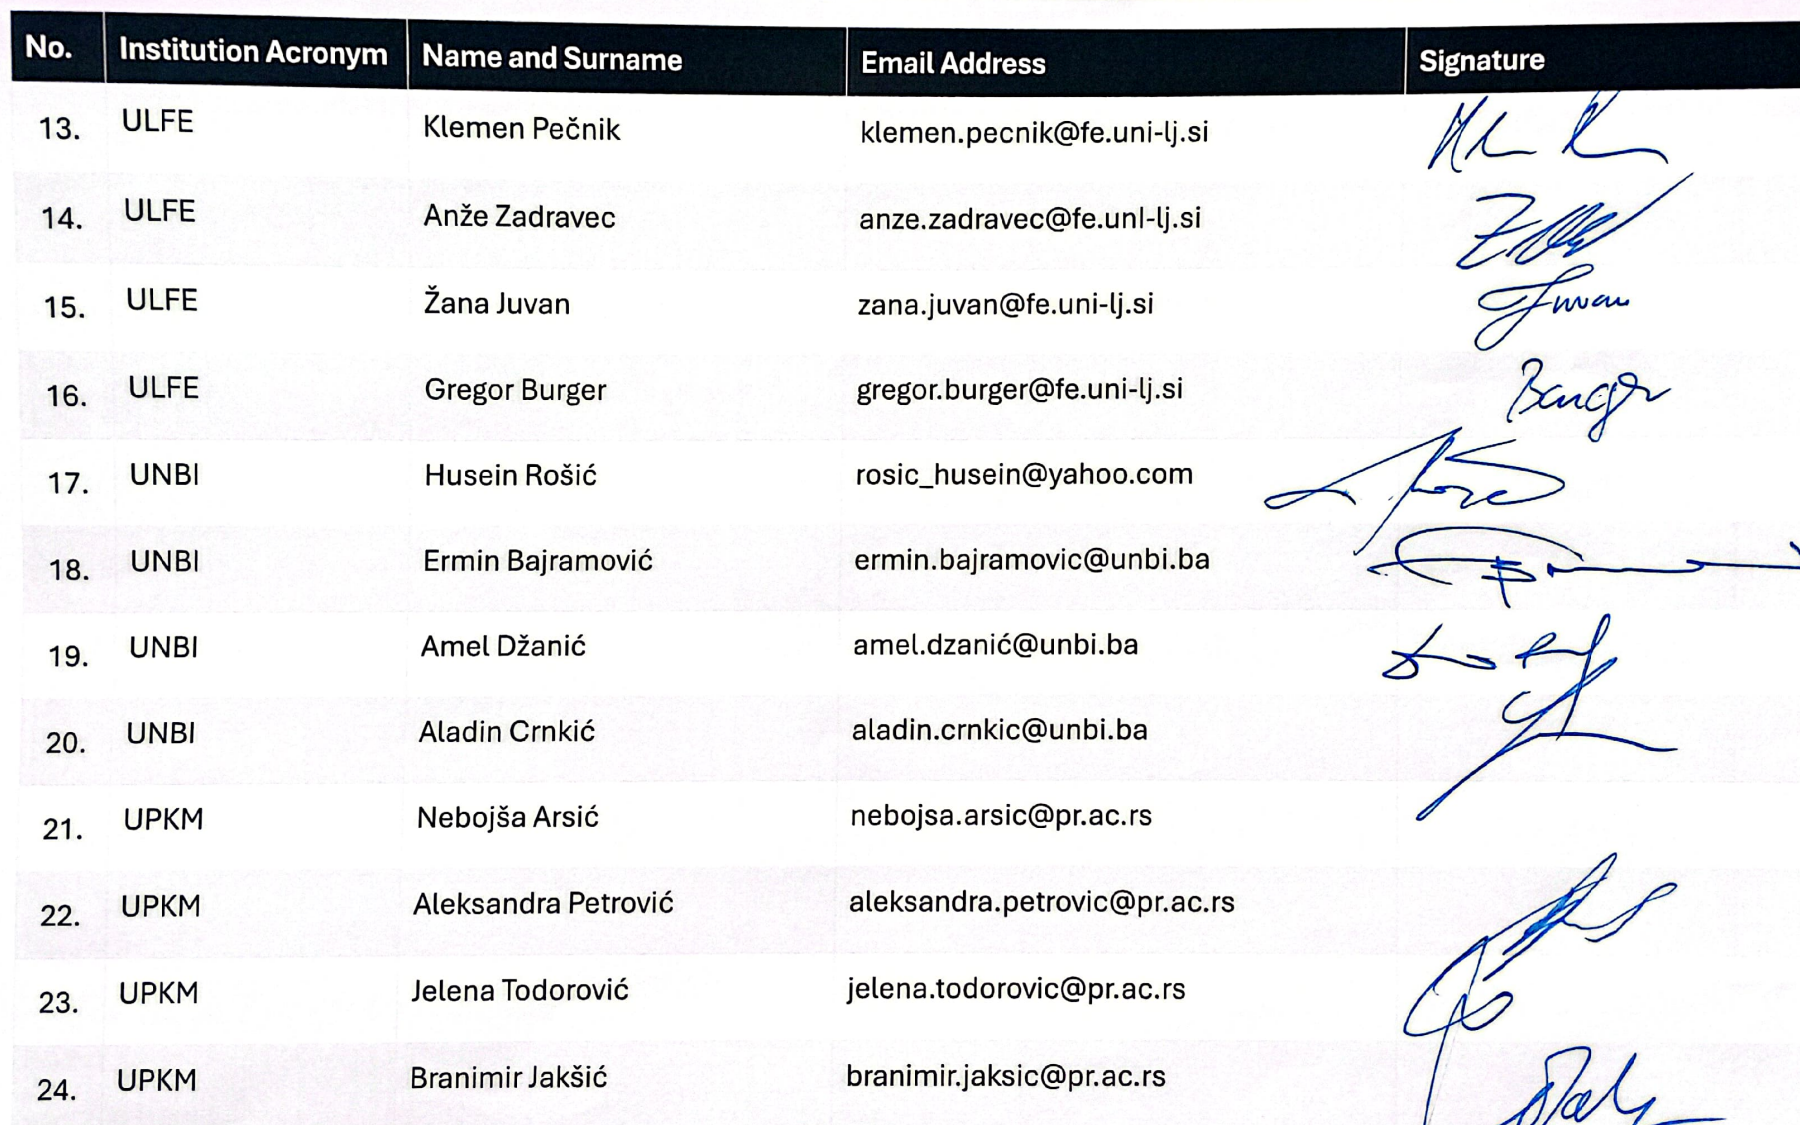 No. Institution Acronym Name and Surname Email Address Signature
13. ULFE Klemen Pečnik klemen.pecnik@fe.uni-lj.si
14. ULFE Anže Zadravec anze.zadravec@fe.unI-lj.si
15. ULFE Žana Juvan zana.juvan@fe.uni-lj.si Juvan
16. ULFE Gregor Burger gregor.burger@fe.uni-lj.si
17. UNBI Husein Rošić rosic_husein@yahoo.com
18. UNBI Ermin Bajramović ermin.bajramovic@unbi.ba
19. UNBI Amel Džanić amel.dzanić@unbi.ba
20. UNBI Aladin Crnkić aladin.crnkic@unbi.ba
21. UPKM Nebojša Arsić nebojsa.arsic@pr.ac.rs
22. UPKM Aleksandra Petrović aleksandra.petrovic@pr.ac.rs
23. UPKM Jelena Todorović jelena.todorovic@pr.ac.rs
24. UPKM Branimir Jakšić branimir.jaksic@pr.ac.rs